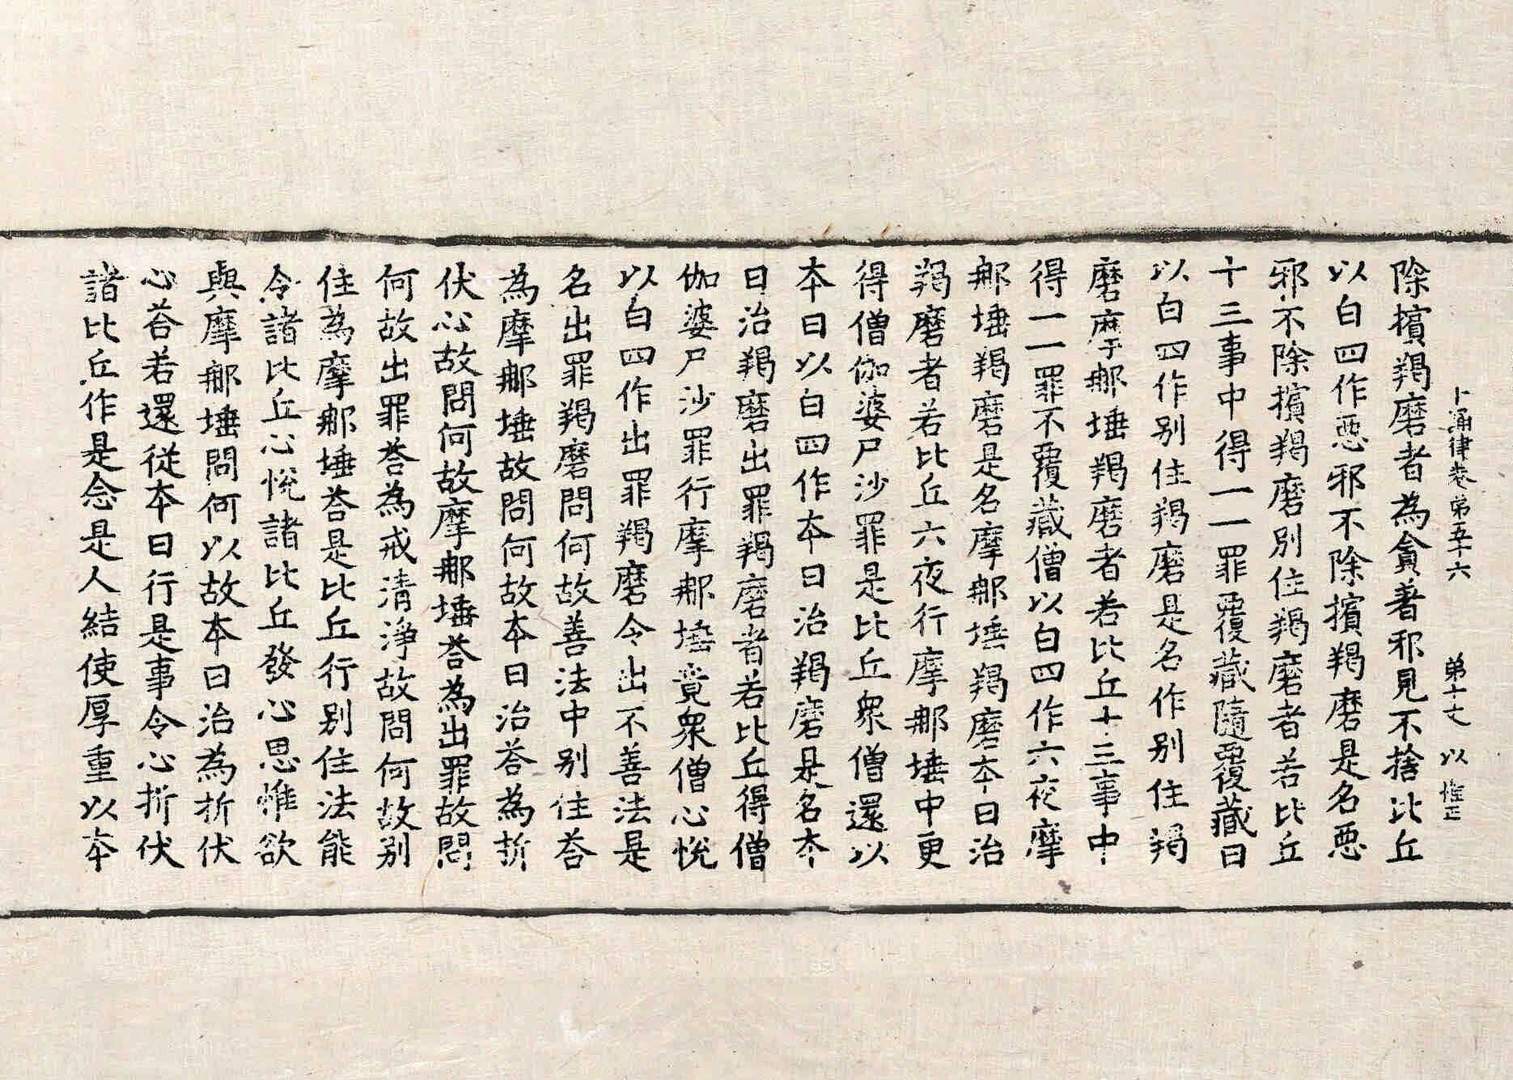 十誦律卷第五十六 第十丈 以 惟正
除擯羯磨者為貪著邪見不捨比丘
以白四作惡邪不除擯羯磨是名惡
邪不除擯羯磨別住羯磨者若比丘
十三事中得一一罪覆藏隨覆藏日
以白四作別住羯磨是名作別住羯
磨摩那埵羯磨者若比丘十三事中
得一一罪不覆藏僧以白四作六夜摩
那埵羯磨是名摩那埵羯磨本日治
羯磨者若比丘六夜行摩那埵中更
得僧伽婆尸沙罪是比丘眾僧還以
本日以白四作本日治羯磨是名本
日治羯磨出罪羯磨者若比丘得僧
伽婆尸沙罪行摩那埵竟眾僧心悅
以白四作出罪羯磨令出不善法是
名出罪羯磨問何故善法中別住荅
為摩那埵故問何故本日治荅為折
伏心故問何故摩那埵荅為出罪故問
何故出罪荅為戒清淨故問何故別
住為摩那埵荅是比丘行別住法能
令諸比丘心悅諸比丘發心思惟欲
與摩那埵問何以故本日治為折伏
心荅若還從本日行是事令心折伏
諸比丘作是念是人結使厚重以本